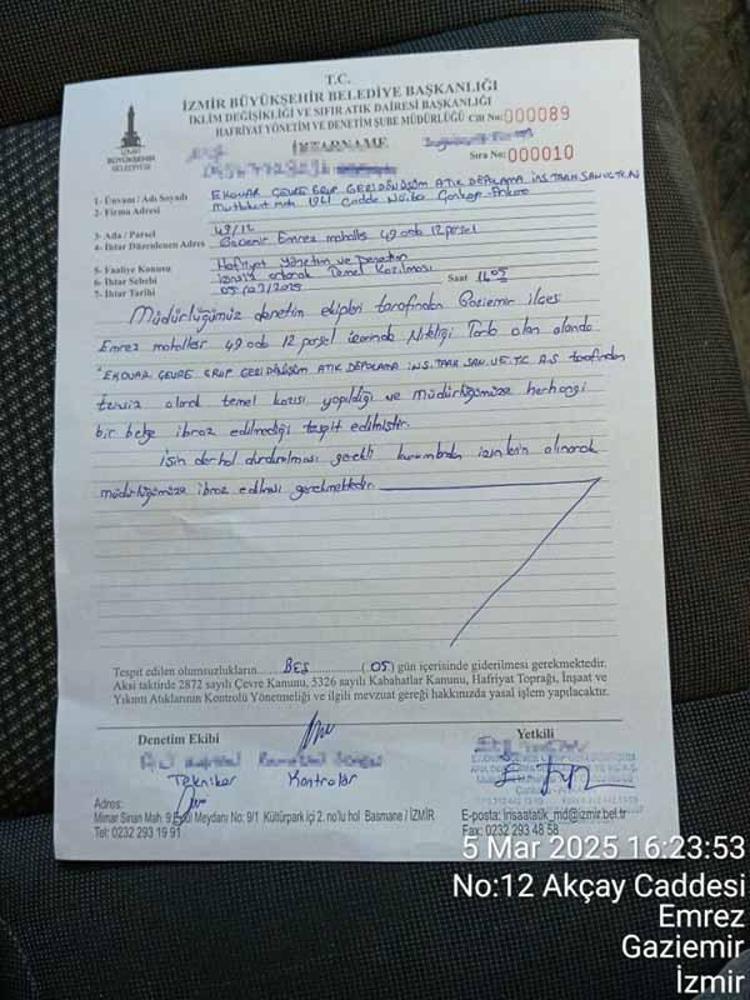 T.C.
İZMİR BÜYÜKŞEHİR BELEDİYE BAŞKANLIĞI
İKLİM DEĞİŞİKLİĞİ VE SIFIR ATIK DAİRESİ BAŞKANLIĞI
HAFRİYAT YÖNETİM VE DENETİM ŞUBE MÜDÜRLÜĞÜ Cilt No: 000089
İZMİR
BÜYÜKŞEHİR
BELEDİYESİ
İHTARNAME
Sıra No: 000010
1- Ünvanı / Adı Soyadı EKOVAR ÇEVRE GRUP GERİ DÖNÜŞÜM ATIK DEPOLAMA İNŞ. TAAH. SAN.
2- Firma Adresi Mutlukent mah. 1961 Cadde Çankaya-Ankara
3- Ada / Parsel 49/12
4- İhtar Düzenlenen Adres Gaziemir Emrez mahalles 49 ada 12 parsel
5- Faaliye Konusu Hafriyat Yönetim ve Denetim
6- İhtar Sebebi İzinsiz olarak Temel Kazılması
7- İhtar Tarihi 05/03/2025 Saat 14:05
Müdürlüğümüz denetim ekipleri tarafından Gaziemir ilçesi
Emrez mahallesi 49 ada 12 parsel üzerinde Niteliği Tarla olan alanda
"EKOVAR ÇEVRE GRUP GERİ DÖNÜŞÜM ATIK DEPOLAMA İNŞ. TAAH. SAN. VE. TİC A.Ş tarafından
İzinsiz olarak temel kazısı yapıldığı ve müdürlüğümüze herhangi
bir belge ibraz edilmediği tespit edilmiştir.
İşin derhal durdurulması gerekli kurumlardan izinlerin alınarak
müdürlüğümüze ibraz edilmesi gerekmektedir.
Tespit edilen olumsuzlukların....BEŞ....( 05 ) gün içerisinde giderilmesi gerekmektedir.
Aksi taktirde 2872 sayılı Çevre Kanunu, 5326 sayılı Kabahatlar Kanunu, Hafriyat Toprağı, İnşaat ve
Yıkıntı Atıklarının Kontrolü Yönetmeliği ve ilgili mevzuat gereği hakkınızda yasal işlem yapılacaktır.
Denetim Ekibi
Yetkili
Tekniker Kontrolör
Adres:
Mimar Sinan Mah. 9 Eylül Meydanı No: 9/1 Kültürpark içi 2. no'lu hol Basmane / İZMİR
Tel: 0232 293 19 91
E-posta: insaatatik_md@izmir.bel.tr
Fax: 0232 293 48 58
5 Mar 2025 16:23:53
No:12 Akçay Caddesi
Emrez
Gaziemir
İzmir